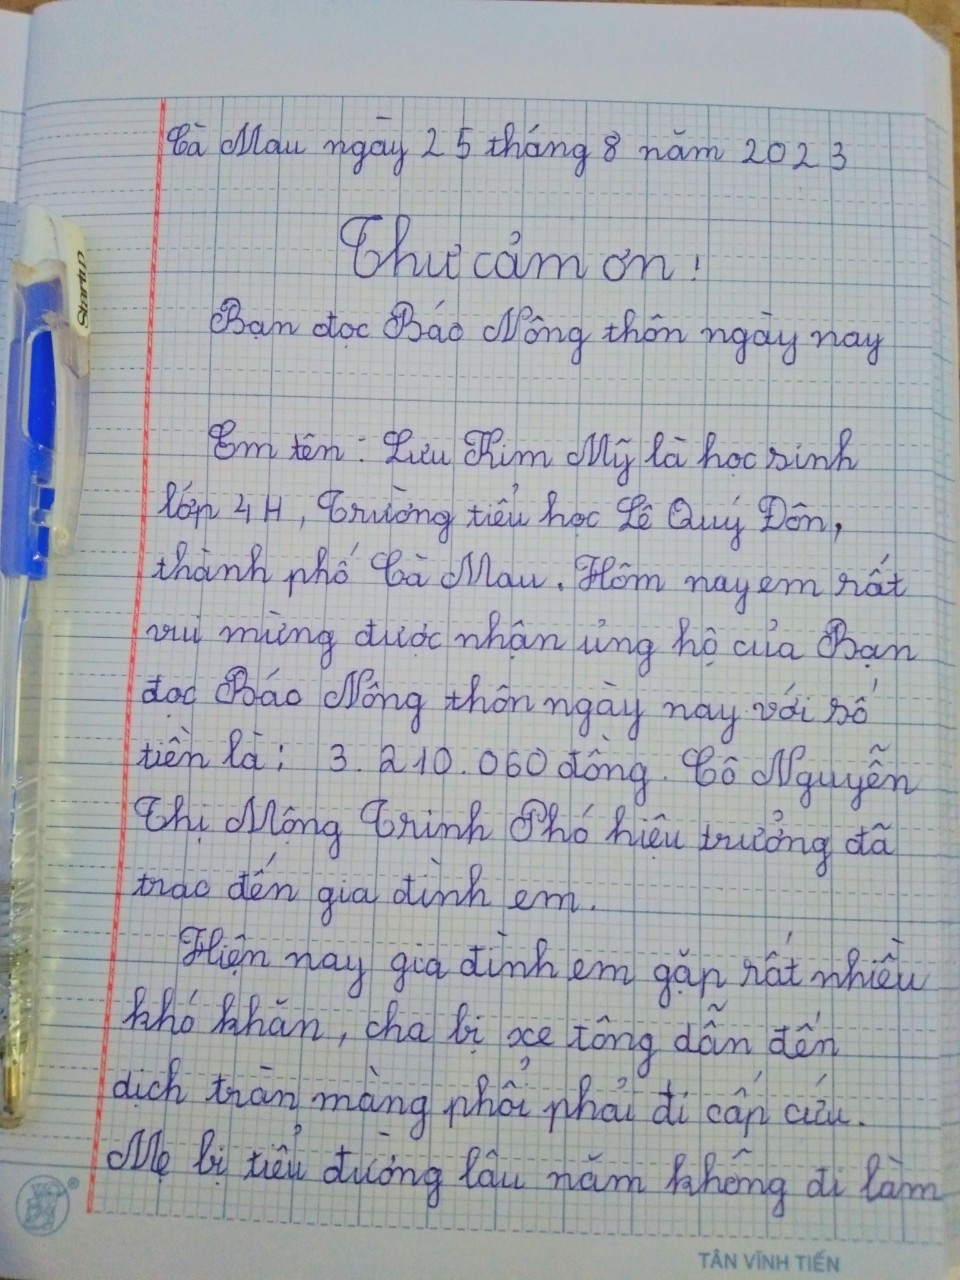 Cà Mau ngày 25 tháng 8 năm 2023
Thư cảm ơn!
Bạn đọc Báo Nông thôn ngày nay
Em tên: Lưu Kim Mỹ là học sinh
lớp 4H, Trường tiểu học Lê Quý Đôn,
thành phố Cà Mau. Hôm nay em rất
vui mừng được nhận ủng hộ của Bạn
đọc Báo Nông thôn ngày nay với số
tiền là: 3.210.060 đồng. Cô Nguyễn
Thị Mộng Trinh Phó hiệu trưởng đã
trao đến gia đình em.
Hiện nay gia đình em gặp rất nhiều
khó khăn, cha bị xe tông dẫn đến
dịch tràn màng phổi phải đi cấp cứu.
Mẹ bị tiểu đường lâu năm không đi làm
TÂN VĨNH TIẾN
StartUp